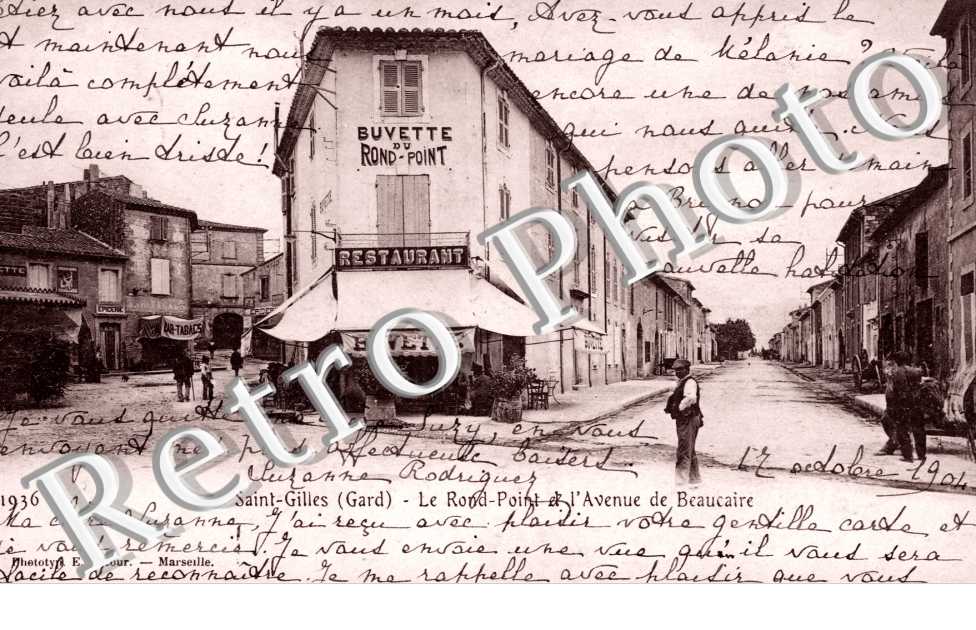 étiez avec nous il y a un mois, Avez-vous appris le
et maintenant nous mariage de Mélanie?
voilà complètement encore une de nos amies
seule avec Suzanne qui nous quitte. Nous
C'est bien triste! pensons aller demain
pour
sa
nouvelle
BUVETTE
DU
ROND-POINT
RESTAURANT
BUVETTE
EPICERIE
BAR-TABACS
Retro Photo
Retro Photo
Je vous quitte Suzy, en vous
envoyant affectueux baisers
Suzanne Rodriguez
17 octobre 1904
1936 Saint-Gilles (Gard) - Le Rond-Point et l'Avenue de Beaucaire
Ma chère Suzanne, J'ai reçu avec plaisir votre gentille carte et
je vous remercie. Je vous envoie une vue qu'il vous sera
facile de reconnaître. Je me rappelle avec plaisir que vous
Phototyp. E. Lacour. — Marseille.